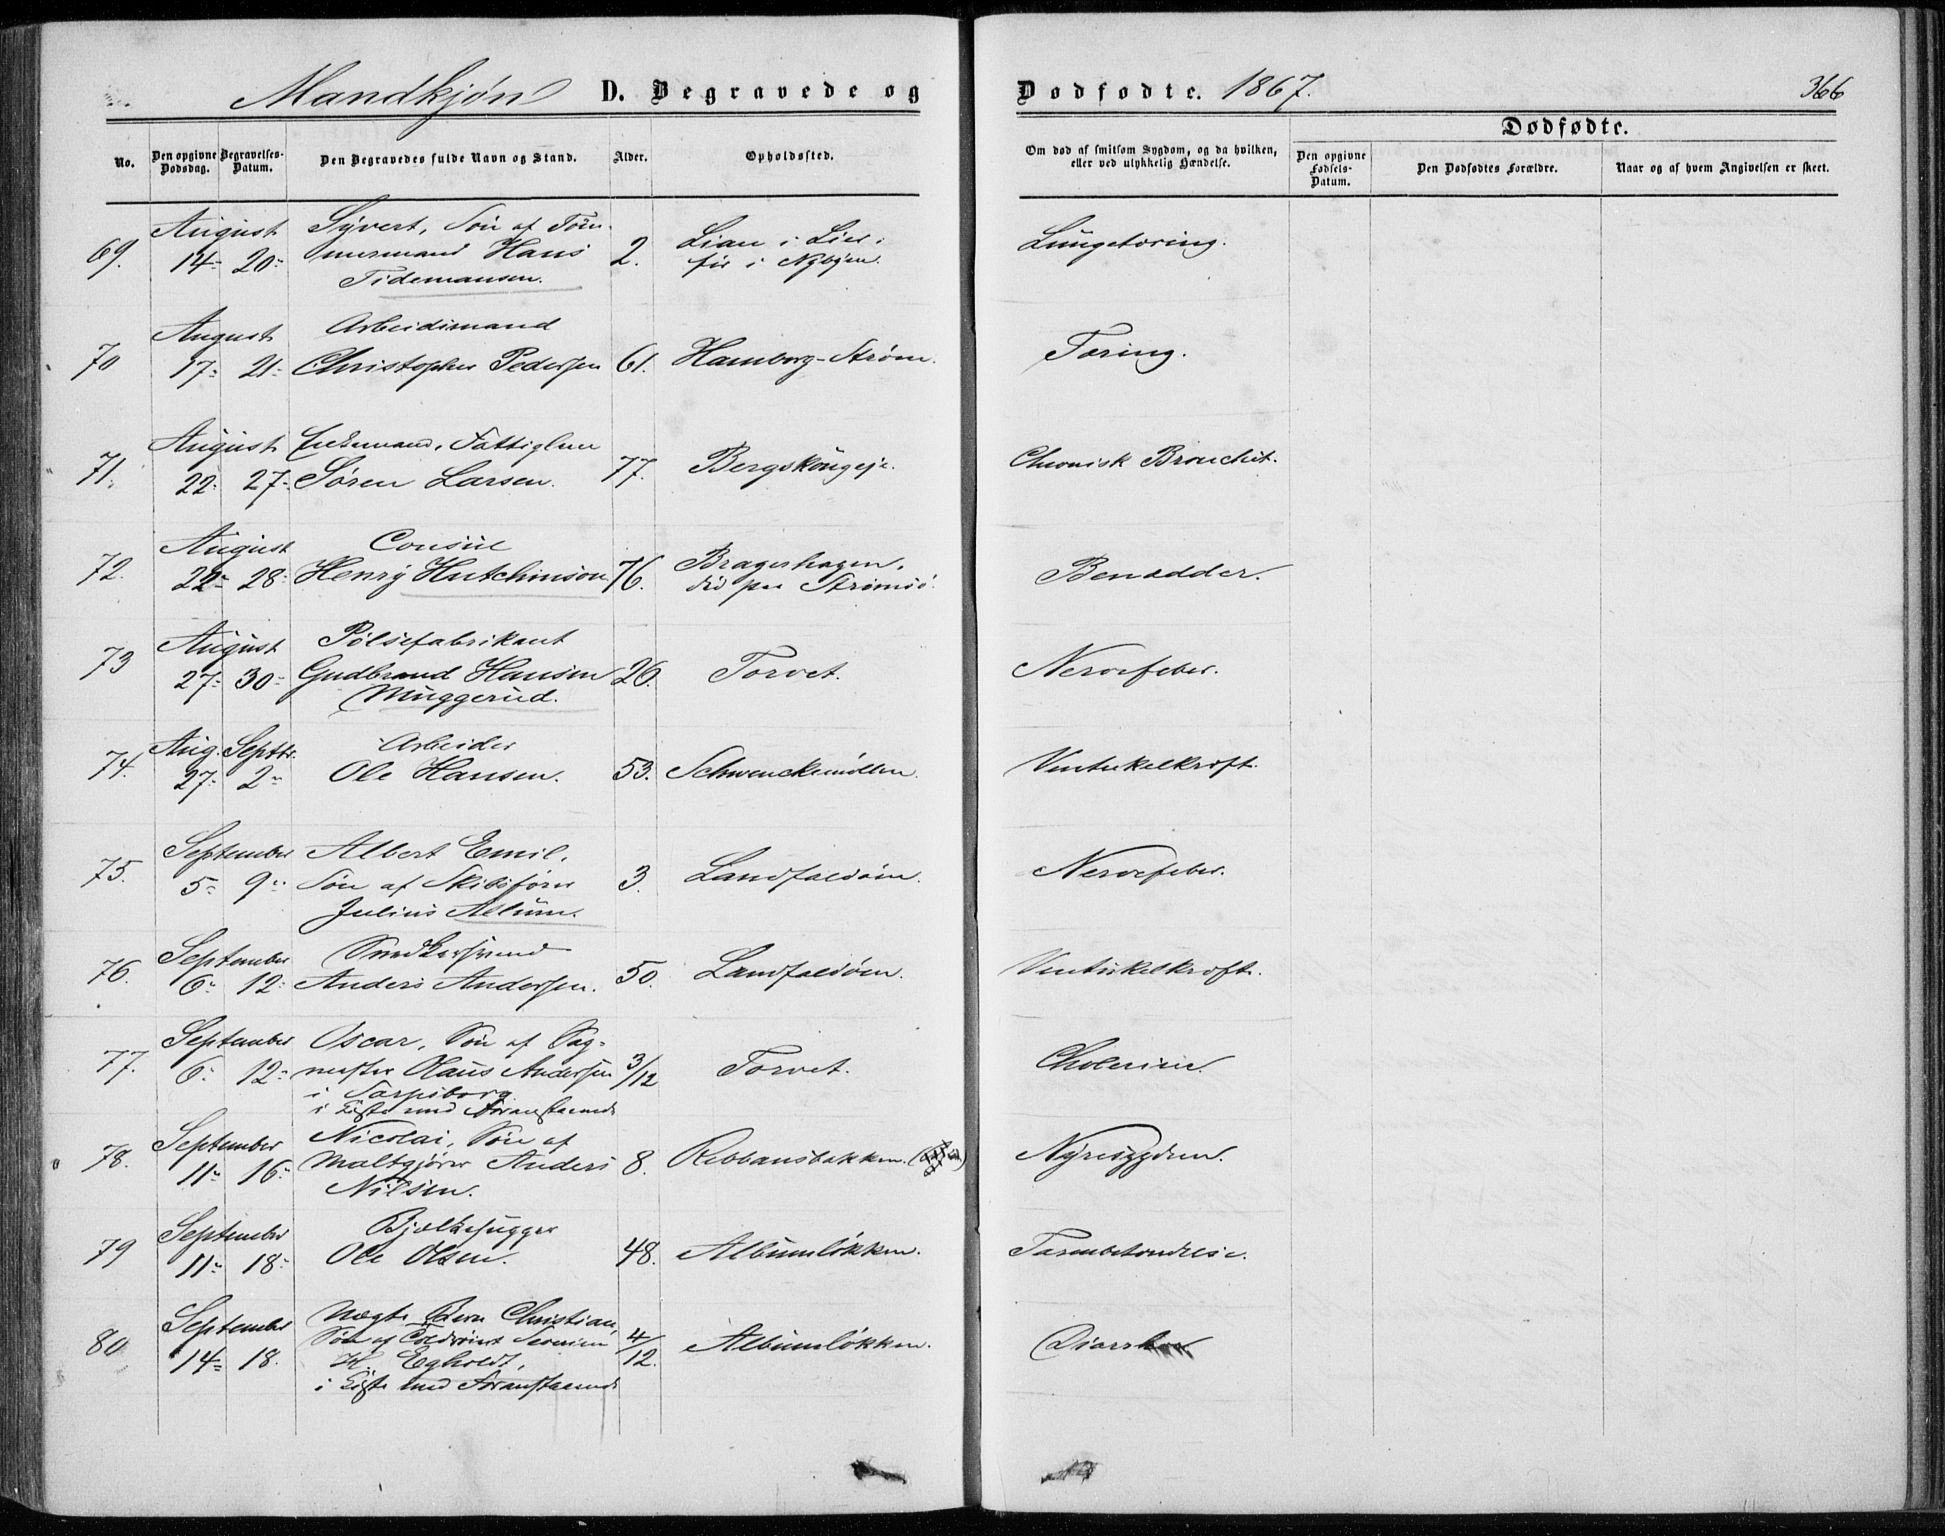 Mandkjøn D. Begravede og Dødfødte. 1867. 366
Dødfødte.
No. Den opgivne Dødsdag. Begravelses-Datum. Den Begravedes fulde Navn og Stand. Alder. Opholdssted. Om død af smitsom Sygdom, og da hvilken, eller ved ulykkelig Hændelse. Den opgivne Fødsels-Datum. Den Dødfødtes Forældre. Naar og af hvem Angivelsen er skeet.
August Syvert, Søn af Töm-
69. 14 20 mermand Hans 2. Lian i Lier Lungetæring.
Tidemansen. før i Nybyen.
August Arbeidsmand
70 17 21 Christopher Pedersen 61. Hamborg-Strøm. Tæring.
August Enkemand, Fattiglem
71. 22 27 Søren Larsen. 77. Bergskougeje. Chronisk Bronchit.
August Consul Bragershagen,
72. 22 28 Henry Hutchinson 76. død paa Strömsö. Benadder.
August Pølsefabrikant
73 27 30 Gudbrand Hansen 26. Torvet. Nervefeber.
Muggerud.
Aug. Septbr. Arbeider
74. 27 2 Ole Hansen. 53. Schwenckemöllen. Ventrikelkræft.
September Albert Emil,
75. 5 9 Søn af Skibsfører 3. Landfaldöen. Nervefeber.
Julius Allum.
September Smedkersvend
76. 6 12 Anders Andersen. 50. Landfaldöen. Ventrikelkræft.
September Oscar, Søn af Sag-
77. 6 12 mester Hans Andersen 3/12 Torvet. Cholerine.
i Sarpsborg.
i Kiste med Foranstaaende
September Nicolai, Søn af
78. 11 16 Maltgjører Anders 8. Rebbansbakken. Nyresygdom.
Nilsen.
September Bjælkehugger
79 11 18 Ole Olsen. 48. Albumløkken. Tarmbetændelse.
September Uægte Bern Christian,
80 14 18. Søn af Severin 4/12. Albumløkken. Diarrhoe
H. Egholdt,
i Kiste med Foranstaaende